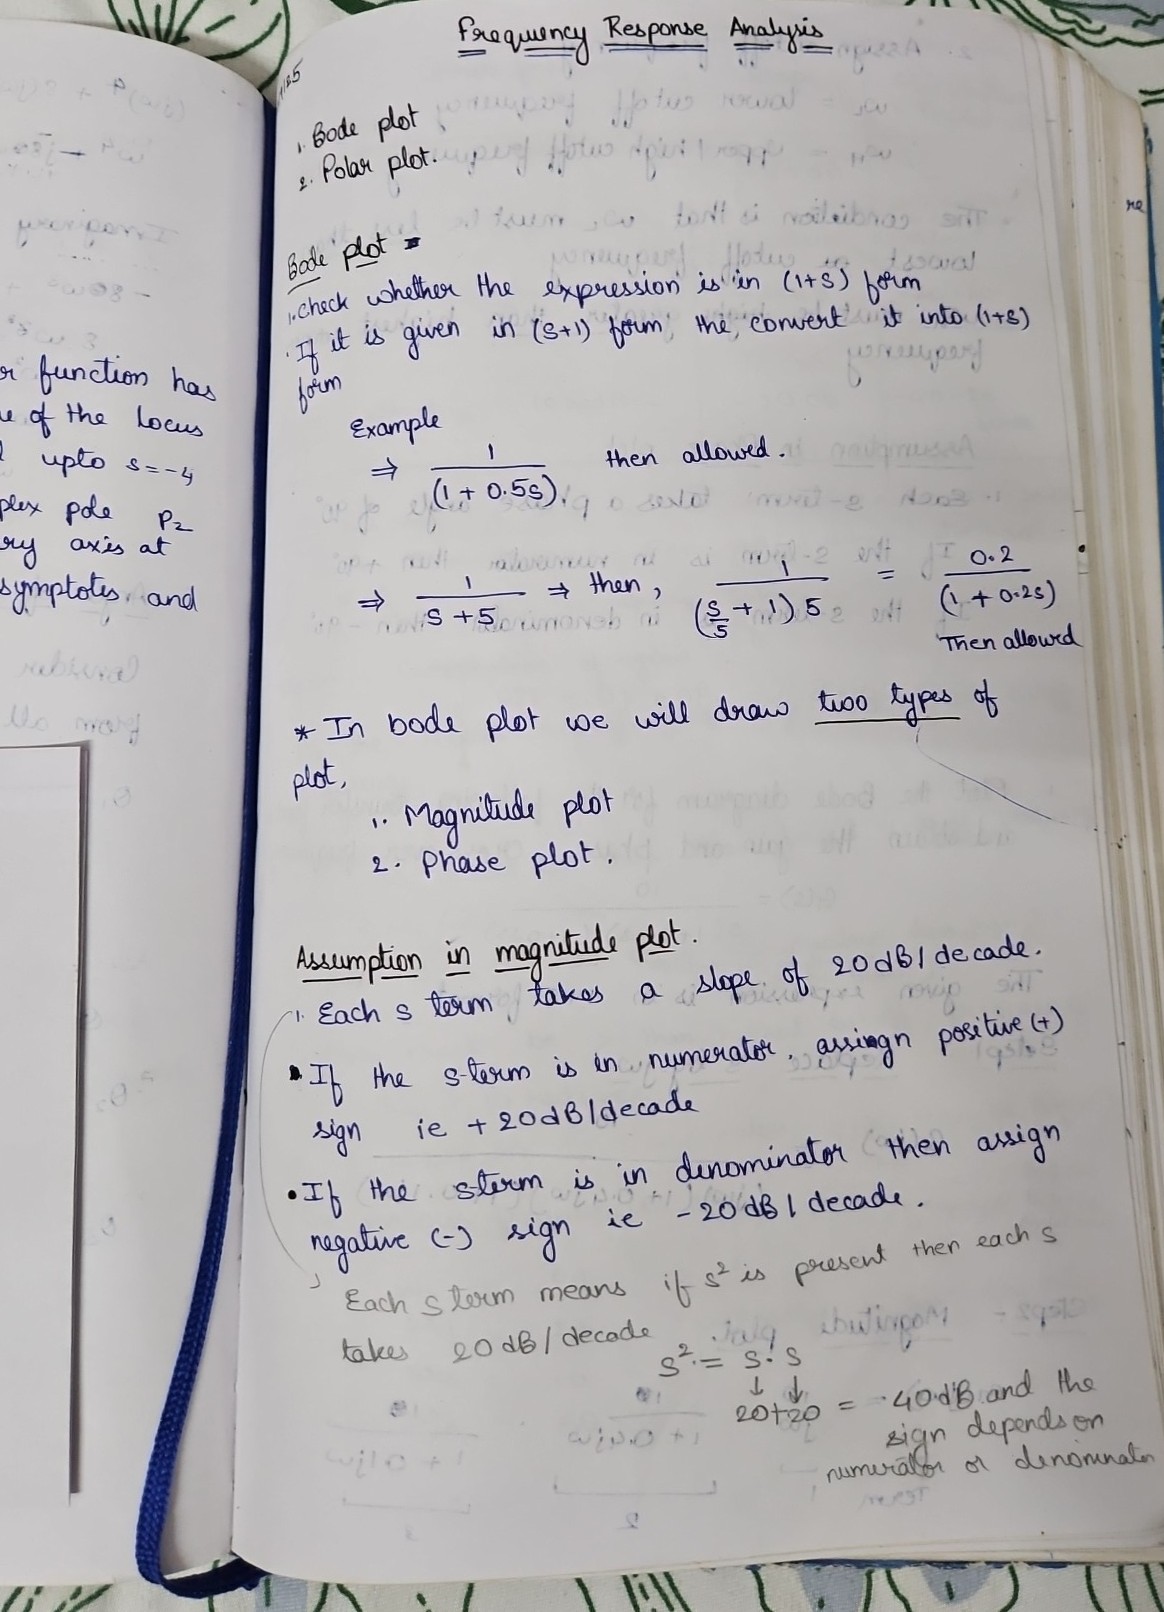 r function has
e of the locus
upto s=-4
plex pole P₂
ry axis at
symptotes and
Frequency Response Analysis
1. Bode plot
2. Polar plot.
Bode plot
1. check whether the expression is in (1+s) form
. If it is given in (s+1) form, the convert it into (1+s)
form
Example
⇒ 1/(1 + 0.5s) then allowed.
⇒ 1/(s+5) ⇒ then, 1/((s/5 + 1) 5) = 0.2/(1 + 0.2s)
Then allowed
* In bode plot we will draw two types of
plot,
1. Magnitude plot
2. Phase plot.
Assumption in magnitude plot.
1. Each s term takes a slope of 20dB/decade.
• If the s-term is in numerator, assingn positive (+)
sign ie +20dB/decade
• If the s-term is in denominator then assign
negative (-) sign ie -20dB/decade.
Each s term means if s² is present then each s
takes 20dB/decade
s² = s·s
↓ ↓
20+20 = 40dB and the
sign depends on
numerator or denominator
re